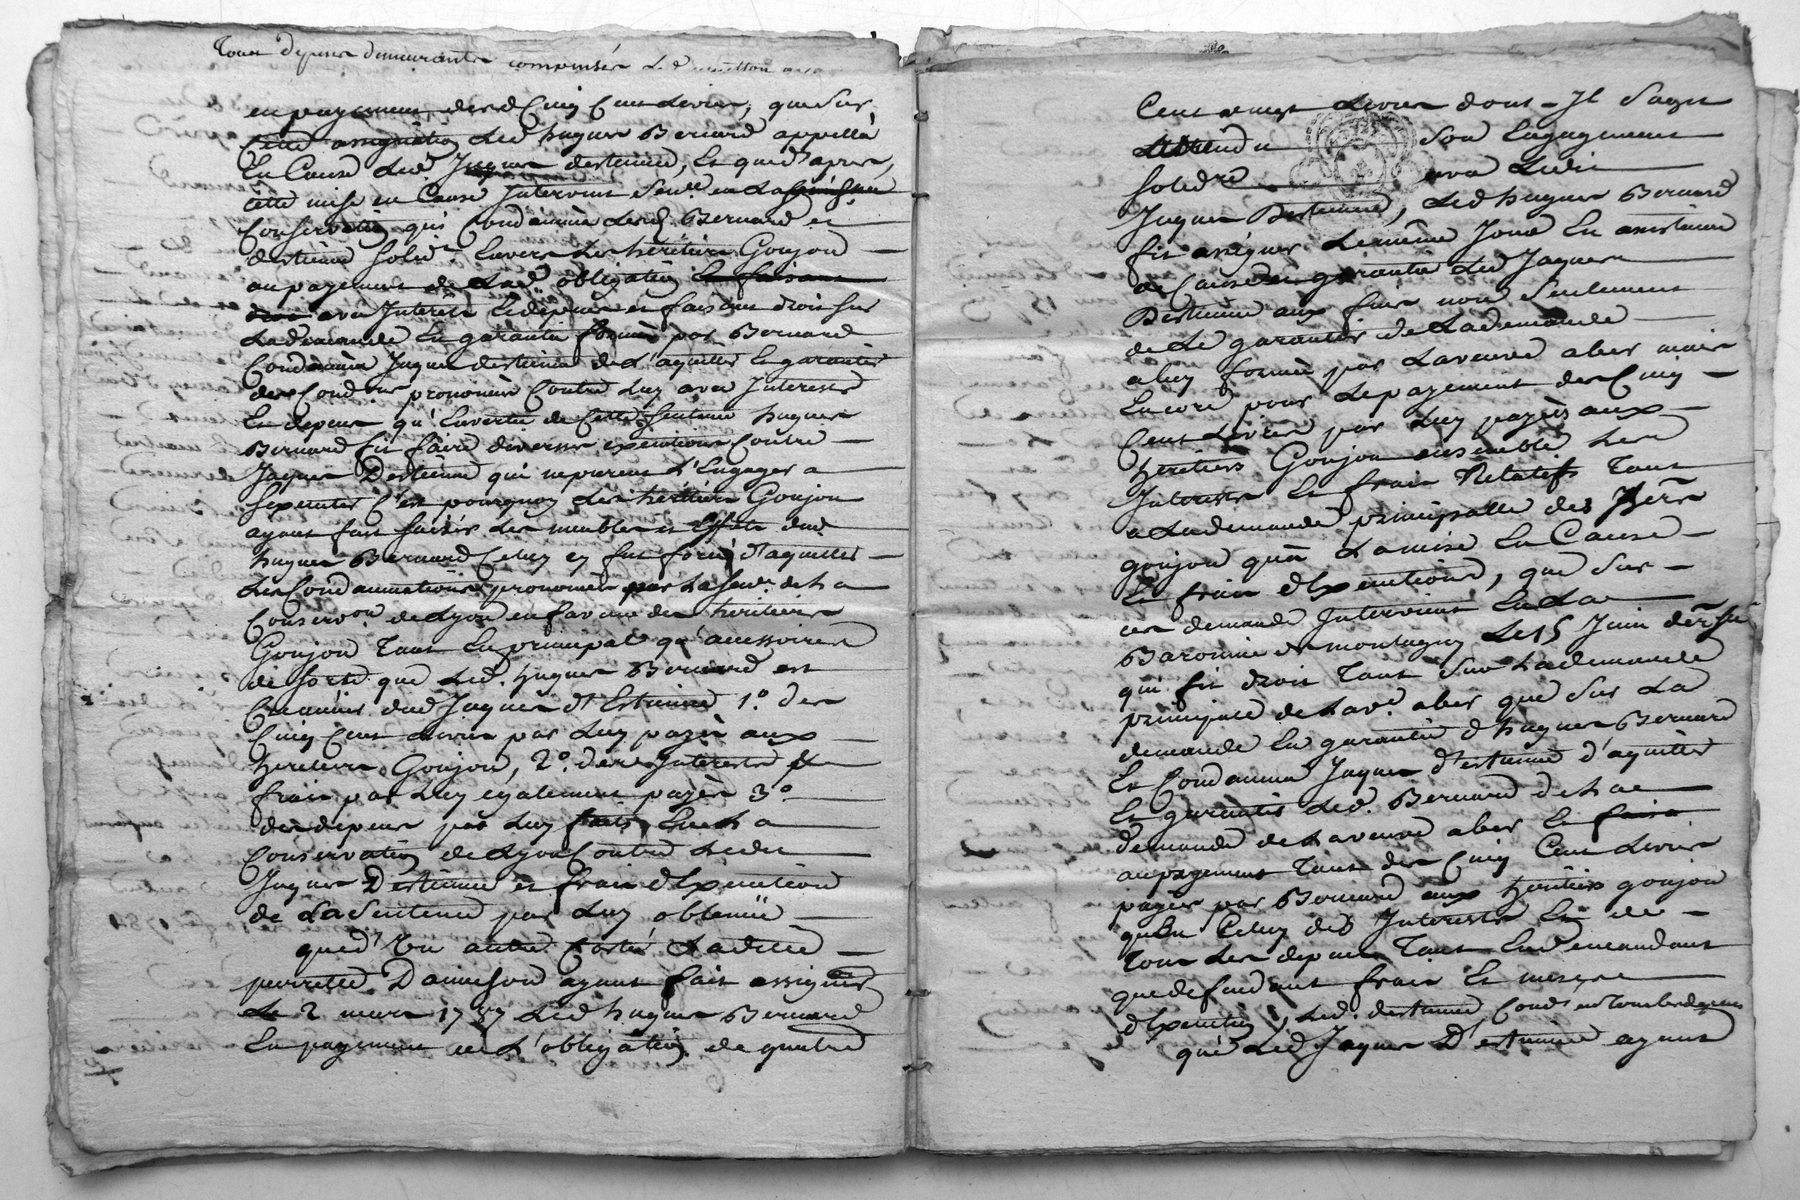 Tous depens demeurants compensés
en payement desd Cinq Cent Livres, que sur
cette assignation Led hugues Bernard appella
En Cause Led. Jaques destienne, Et que d'apres
cette mise en Cause Intervint Sence. en La
Conservation qui Condamna Lesd. Bernard et
destienne solid.t Envers Les héritiers Goujon
au payement de Lad. obligation Et faisant
droit avec Interets Et depens et faisant droit sur
La demande En garantie formée par Bernard
Condamna Jaques destienne de L'aquitter Et garantir
des Cond.ons prononcées Contre Luy avec Interests
Et depens qu'En vertu de Cette sentence hugues
Bernard fit faire diverses executions Contre
Jaques Destienne qui ne purent L'Engager a
s'executer C'est pourquoy Les heritiers Goujon
ayant fait saisir Les meubles et Effets dud
hugues Bernard Celuy cy fut forcé d'aquitter
Les Condamnations prononcées par La Sence. de La
Conserv.on de Lyon en faveur des heritiers
Goujon Tant En principal qu'accessoires
de sorte que Led. hugues Bernard est
Creancier dud Jaques d'Estienne 1.° des
Cinq Cent Livres par Luy payés aux
heritiers Goujon, 2.° des Interests et
frais par Luy egalement payés 3.°
des depens par Luy faits En La
Conservation de Lyon Contre Ledit
Jaques Destienne et frais d'Execution
de La Sentence par Luy obtenüe
que d'Un autre Costé Ladite
perrette Damieson ayant fait assigner
Le 2 mars 1757 Led hugues Bernard
En payement de L'obligation de quatre
Cent vingt Livres dont Il s'agit
attendu Son Engagement
solidre. avec Ledit
Jaques Destienne, Led hugues Bernard
fit assigner Le même Jour En assistance
de Cause et garantie Led Jaques
Destienne aux fins non seulement
de Le garantir de La demande
a luy formée par La veuve aber mais
Encore pour Le payement des Cinq
Cent Livres par Luy payées aux
heritiers Goujon ensemble Les
Interests Et frais Relatifs Tant
a La demande principalle des hers.
goujon qu'à La mise En Cause
Et frais d'Executions, que sur
ces demandes Intervient En La
Baronnie de montagny Le 15 Juin der
qui fit droit Tant Sur La demande
principale de La ve. aber que sur La
demande En garantie d'hugues Bernard
Et Condamna Jaques d'estienne d'aquitter
Et garantir Led. Bernard de La
demande de La veuve aber Et faisa
au payement Tant des Cinq Cent Livres
payées par Bernard aux heritiers goujon
qu'En Celuy des Interests Et de
Tous Les depens Tant En demandant
que defendant frais Et mises
d'Execution, Led. destienne Cond. en Tous Les depens
que Led Jaques D'estienne ayant